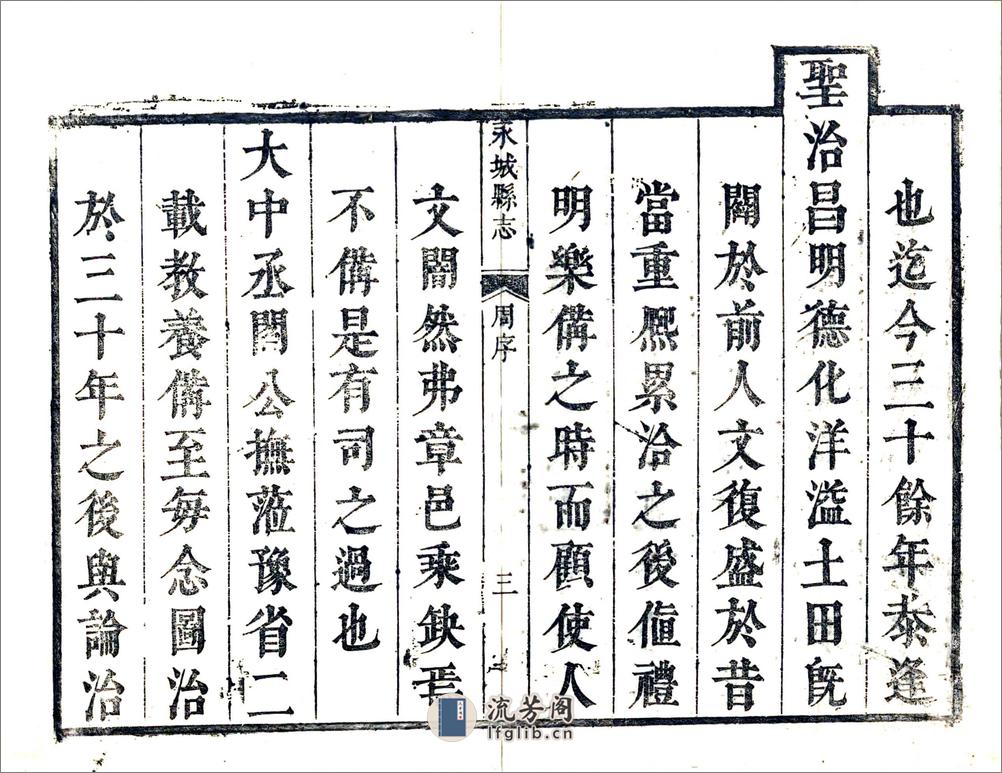 也迄今三十餘年恭逢
聖治昌明德化洋溢土田旣
闢於前人文復盛於昔
當重熈累洽之後値禮
明樂備之時而顧使人
永城縣志 周序 三
文闇然弗章邑乘缺焉
不備是有司之過也
大中丞閻公撫蒞豫省二
載教養備至每念圖治
於三十年之後與論治
流芳阁
lfglib.cn